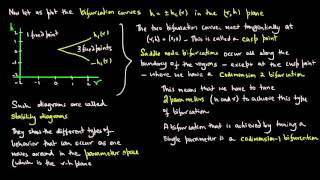 Now let us plot the bifurcation curves h = ± hc(r) in the (r, h) plane
h
hc(r)
1 fixed point
3 fixed points
-hc(r)
r
Such diagrams are called
Stability diagrams
They show the different types of
behavior that can occur as one
moves around in the parameter space
(which is the r-h plane
The two bifurcation curves meet tangentially at
(r,h) = (0,0) - This is called a cusp point
Saddle node bifurcations occur all along the
boundary of the regions - except at the cusp point
- where we have a codimension 2 bifurcation
This means that we have to tune
2 parameters (h and r) to achieve this type
of bifurcation
A bifurcation that is achieved by tuning a
single parameter is a codimension-1 bifurcation